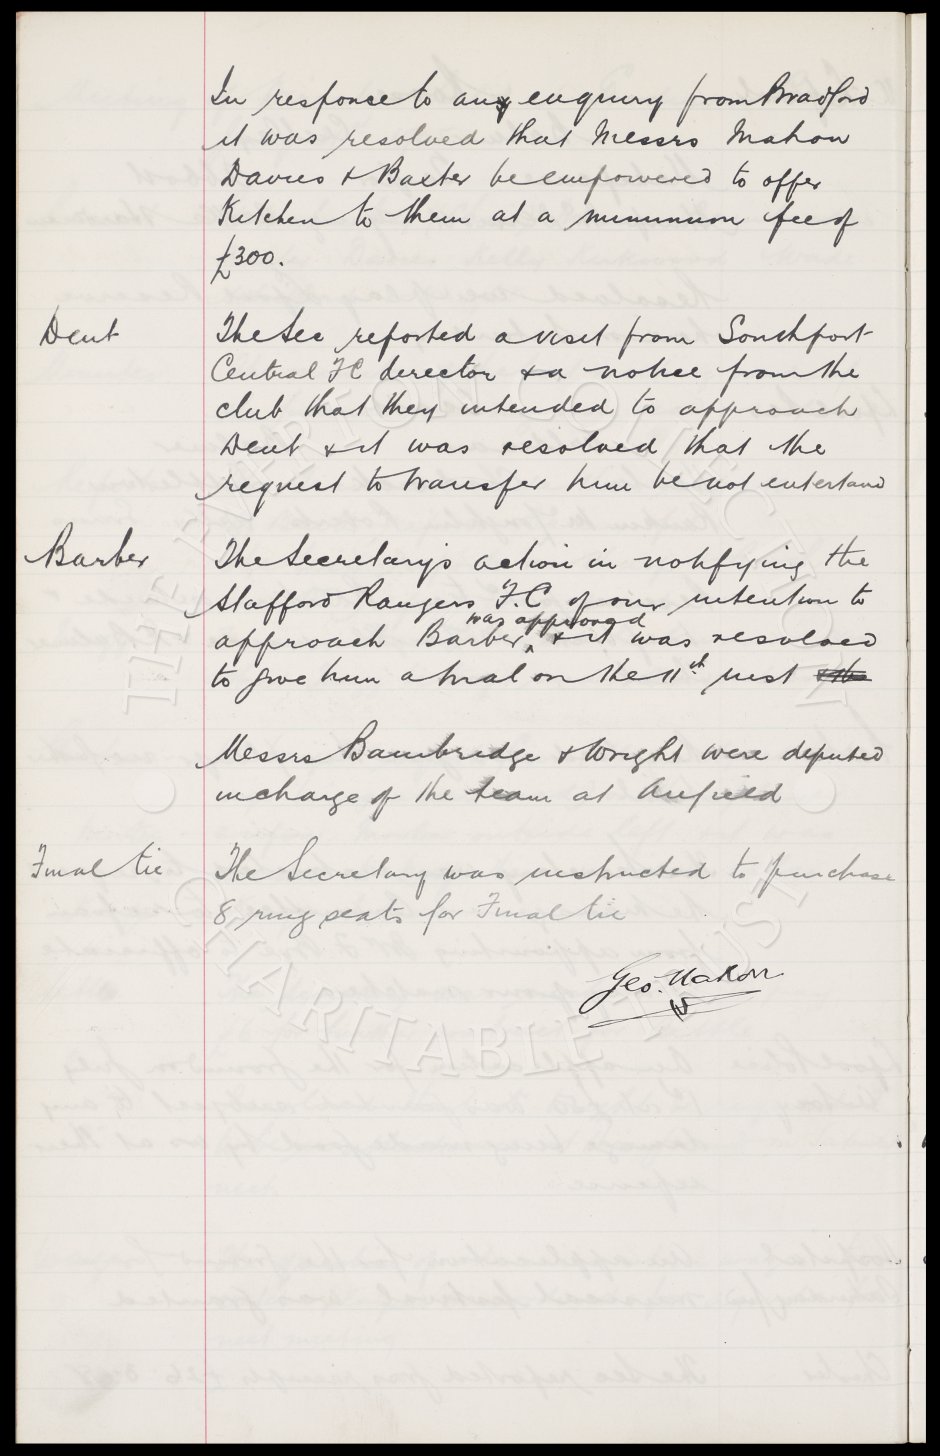 In response to any enquiry from Bradford
it was resolved that Messrs Mahon
Davies & Baxter be empowered to offer
Kitchen to them at a minimum fee of
£300.
Dent
The Sec reported a visit from Southport
Central FC director & a notice from the
club that they intended to approach
Dent & it was resolved that the
request to transfer him be not entertand
Barber
The Secretary's action in notifying the
Stafford Rangers F.C of our intention to
was approved
approach Barber & it was resolved
to give him a trial on the 11th inst
Messrs Bainbridge & Wright were deputed
in charge of the team at Anfield
Final tie
The Secretary was instructed to purchase
8 ring seats for Final tie
Geo. Mahon
THE EVERTON COLLECTION
CHARITABLE TRUST